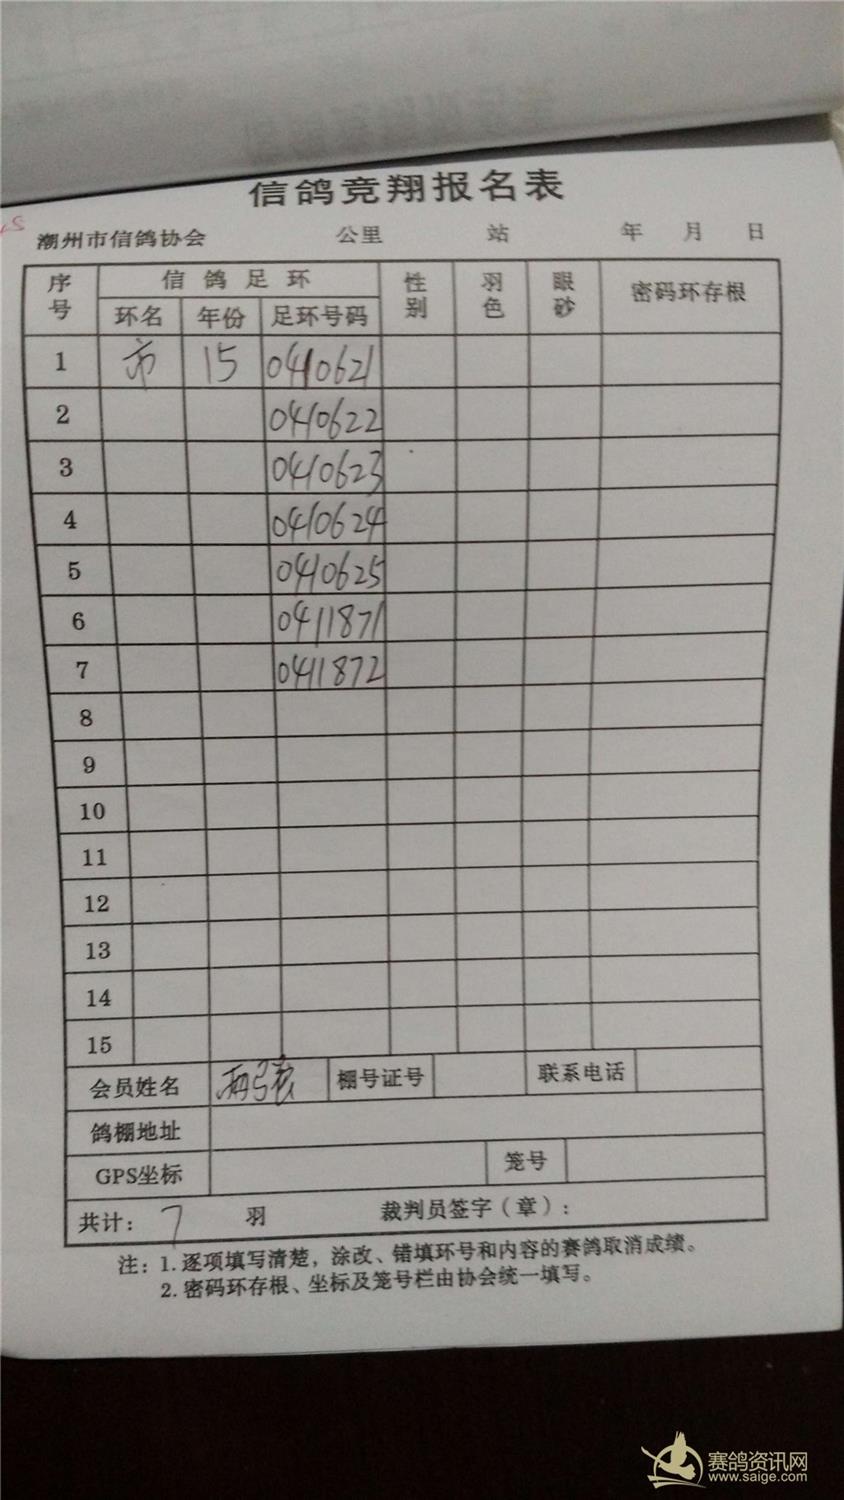 信鸽竞翔报名表
潮州市信鸽协会 公里 站 年 月 日
序号 信鸽足环 性别 羽色 眼砂 密码环存根
环名 年份 足环号码
1 市 15 0410621
2 0410622
3 0410623
4 0410624
5 0410625
6 0411871
7 0411872
8
9
10
11
12
13
14
15
会员姓名 棚号证号 联系电话
鸽棚地址
GPS坐标 笼号
共计: 7 羽 裁判员签字(章):
注: 1. 逐项填写清楚,涂改、错填环号和内容的赛鸽取消成绩。
2. 密码环存根、坐标及笼号栏由协会统一填写。
赛鸽资讯网
www.saige.com